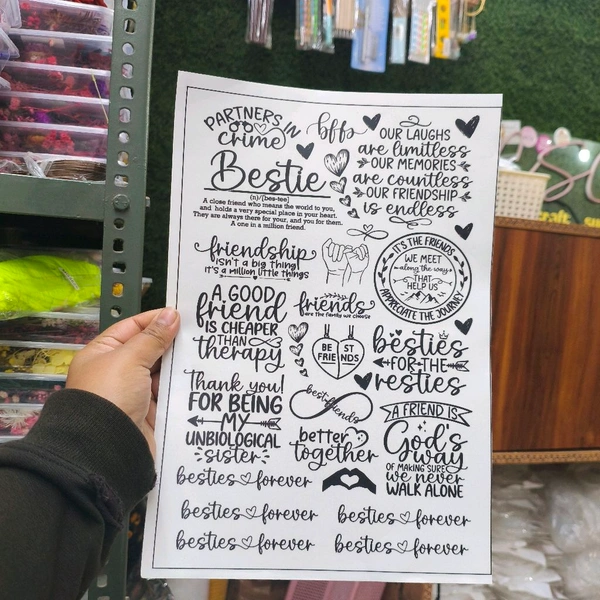 PARTNERS IN
crime
bffs
OUR LAUGHS
are limitless
OUR MEMORIES
are countless
OUR FRIENDSHIP
is endless
Bestie
(n)/[bes-tee]
A close friend who means the world to you,
and holds a very special place in your heart.
They are always there for you, and you for them.
A one in a million friend.
friendship
isn't a big thing!
it's a million little things
IT'S THE FRIENDS
WE MEET
along the way
THAT
HELP US
APPRECIATE THE JOURNEY
A GOOD
friend
IS CHEAPER
THAN
therapy
friends
are the family we choose
BE ST
FRIE NDS
besties
FOR THE
resties
Thank you!
FOR BEING
MY
UNBIOLOGICAL
sister
best friends
better
together
A FRIEND IS
God's
way
OF MAKING SURE
we never
WALK ALONE
besties forever
besties forever
besties forever
besties forever
besties forever
craft